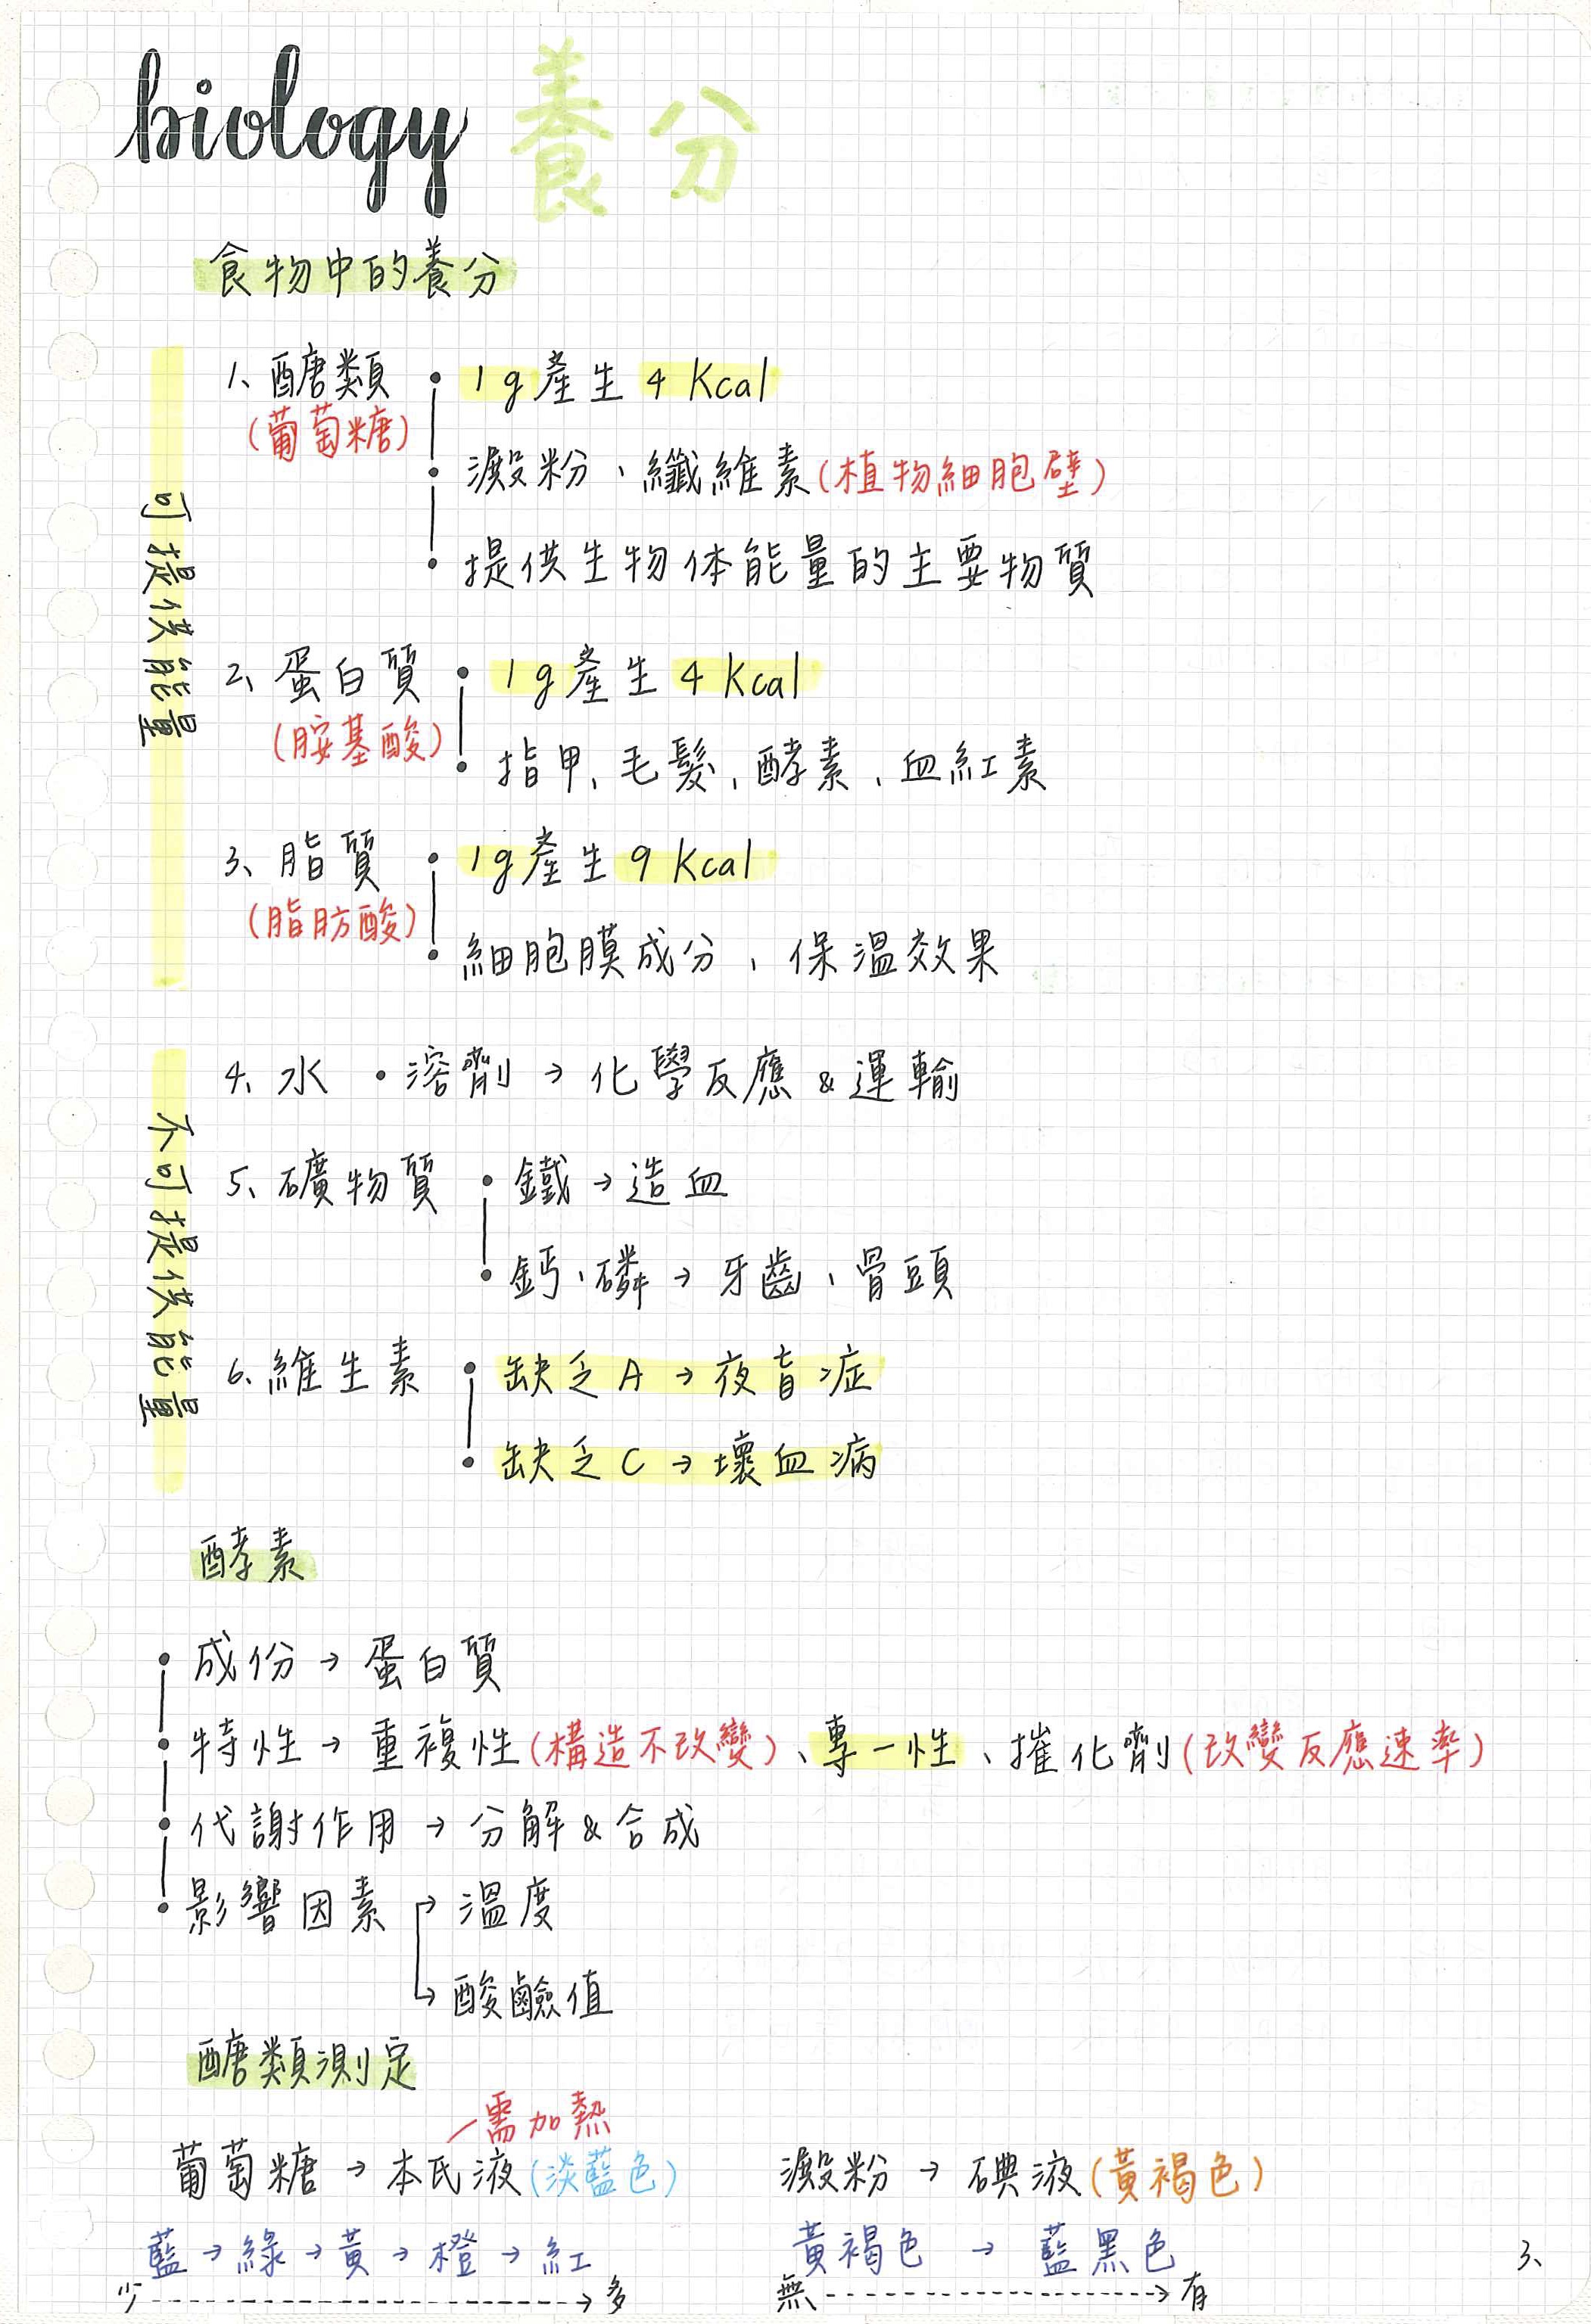 biology 養分
食物中的養分
可提供能量
1、醣類 • 1g產生4 Kcal
(葡萄糖)
• 澱粉、纖維素(植物細胞壁)
• 提供生物体能量的主要物質
2、蛋白質 • 1g產生4 Kcal
(胺基酸)
• 指甲、毛髮、酵素、血紅素
3、脂質 • 1g產生9 Kcal
(脂肪酸)
• 細胞膜成分、保溫效果
不可提供能量
4、水 • 溶劑→化學反應&運輸
5、礦物質 • 鐵→造血
• 鈣、磷→牙齒、骨頭
6、維生素 • 缺乏A→夜盲症
• 缺乏C→壞血病
酵素
• 成份→蛋白質
• 特性→重複性(構造不改變)、專一性、摧化劑(改變反應速率)
• 代謝作用→分解&合成
• 影響因素→溫度
→酸鹼值
醣類測定
需加熱
葡萄糖→本氏液(淡藍色)
藍→綠→黃→橙→紅
少→多
澱粉→碘液(黃褐色)
黃褐色→藍黑色
無→有
3、